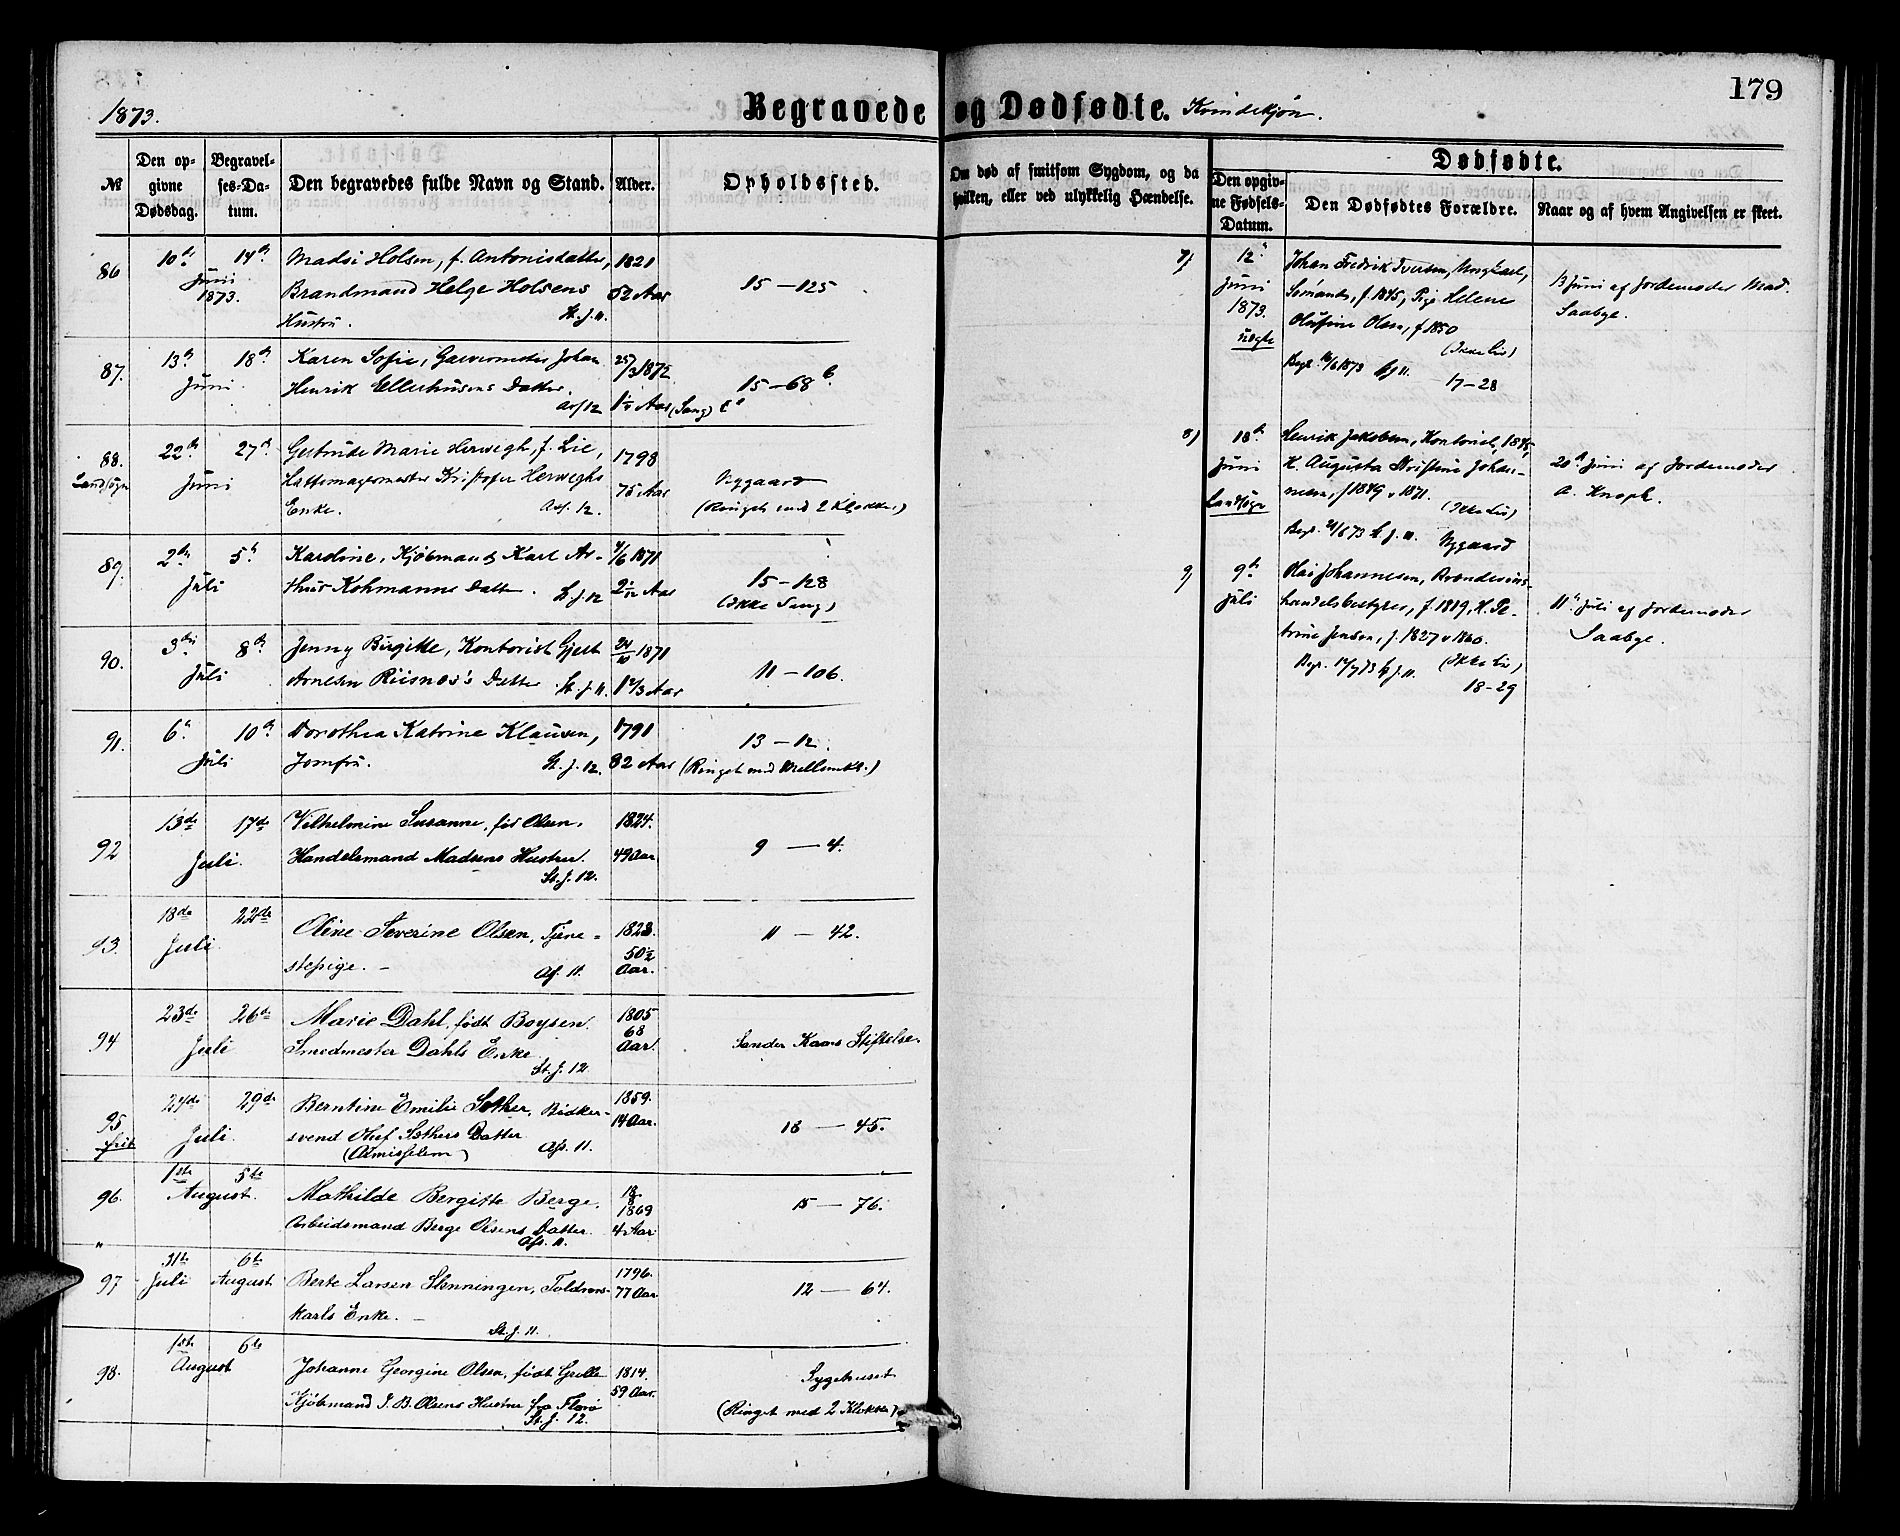 179
1873.
Begravede og Dødfødte. Kvindekjøn.
№
Den opgivne Dødsdag.
Begravelses-Datum.
Den begravedes fulde Navn og Stand.
Alder.
Opholdssted.
Om død af smitsom Sygdom, og da hvilken, eller ved ulykkelig Hændelse.
Dødfødte.
Den opgivne Fødsels-Datum.
Den Dødfødtes Forældre.
Naar og af hvem Angivelsen er skeet.
86 10de 14de Madsi Holsen, f. Antonisdatter, 1821
Juni
1873. Brandmand Helge Holsens 52 Aar 15 – 125
Hustru. St. J. 11.
87. 13de 18de Karen Sofie, Garvermester Johan 25/3 1872
Juni. Henrik Ellerhusens Datter. 15 – 68 b.
Asf 12 1¼ Aar (Sang)
88. 22de 27de Gertrude Marie Herwegh, f. Lie, 1798
Landsogn Juni Hattemagermester Kristofer Herweghs 75 Aar Nygaard
Enke. Asf. 12. (Ringet med 2 Klokker)
89. 2de 5te Karoline, Kjøbmand Karl Ar- 1871
Juli thur Kohmanns Datter. St. J. 12 Aar 15 – 128
(Ikke Sang)
90. 3die 8de Jenny Birgitte, Kontorist Gjert 24/10 1871
Juli Arnesen Riisnæs's Datter St. J. 11. 1 2/3 Aar 11 – 106.
91. 6te 10de Dorothea Katrine Klausen, 1791
Juli Jomfru. St. J. 12. 82 Aar 13 – 12.
(Ringet med Mellemkl.)
92 13de 17de Vilhelmine Susanne, før Olsen, 1824.
Juli. Handelsmand Madsens Hustru. 49 Aar 9 – 4.
St. J. 12.
93. 18de 22de Oline Severine Olsen, Tjene- 1823.
Juli stepige. – Asf. 11. 50½ Aar. 11 – 42.
94 23de 26de Marie Dahl, født Boysen. 1805
Juli Smedmester Dahls Enke 68 Aar. Sander Kaaes Stiftelse.
St. J. 12.
95 24de 29de Berntine Emilie Sather, Bødker- 1859.
frit Juli. svend Oluf Sathers Datter 14 Aar. 18 – 45.
(Almisselem) Asf. 11.
96. 1ste 5te Mathilde Bergitte Berge. 18/8 1869
August. Arbeidsmand Berge Olsens Datter. 4 Aar 15 – 76.
Asf. 11.
97 31te 6te
Juli August Berte Larsen Slenningen, Toldroers- 1796. 77 Aar. 12 – 64.
karls Enke. –
St. J. 11.
98. 1ste 6te
August Johanne Georgine Olsen, født Grelle 1814. Sygehuset
Kjøbmand J. B. Olsens Hustru fra Florø 59 Aar. (Ringet med 2 Klokker)
St. J. 12.
7) 12te Johan Fredrik Iversen, Ungkarl,
Juni Sømand, f. 1845, Pige Helene 13 Juni af Jordemoder Mad.
1873. Olufine Olsen, f. 1850 Saabye.
uægte (Ikke Liv)
Begr. 16/6 1873 St J 11. 17 – 28
8) 18de Henrik Jakobsen, Kontorist, 1845,
Juni H. Augusta Kristine Johan- 20de Juni af Jordemoder
nesen, f 1849 v 1871. A. Knoph.
Landsogn (Ikke Liv)
Begr. 21/6 73 St. J. 11. Nygaard
9) 9de Olai Johannesen, Brændeviins-
Juli handelsbestyrer, f. 1819, H. Pe- 11te Juli af Jordemoder
trine Jensen, f. 1827 v 1860. Saabye.
Begr. 14/7 73 St J. 11. (Ikke Liv)
18 – 29